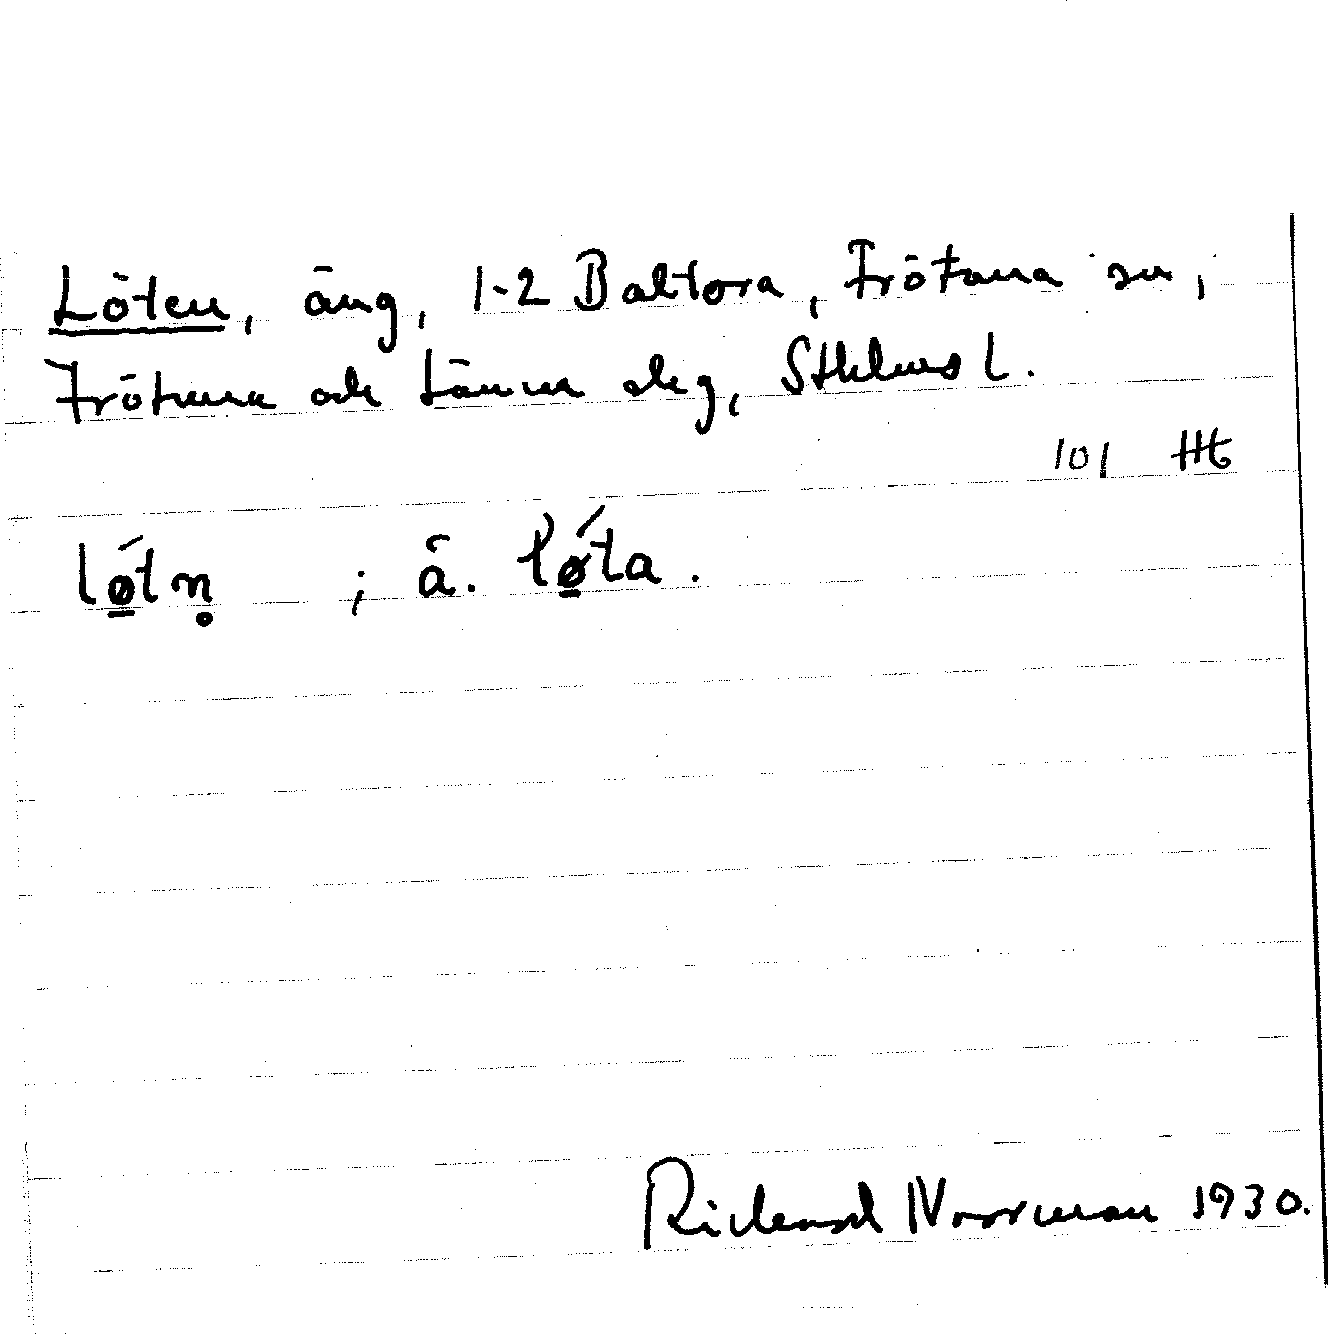 Löten, äng, 1-2 Baltora, Frötuna sn,
Frötuna och Länna skg, Sthlms l.
101 Ht
lǿtn̥ ; å. lǿta.
Rickard Norrman 1930.